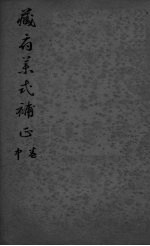 藏府藥式補正
卷中